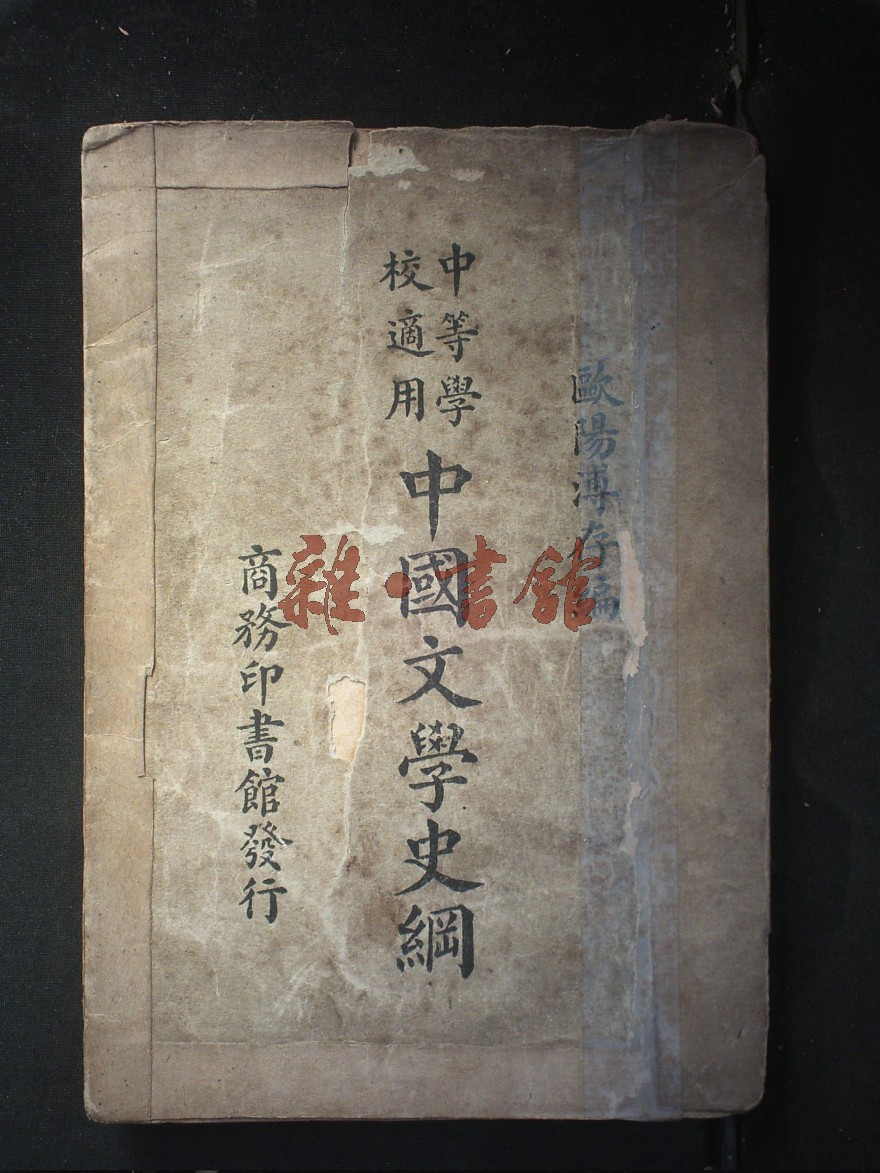 歐陽溥存編
中等學
校適用
中國文學史綱
商務印書館發行
雜·書館